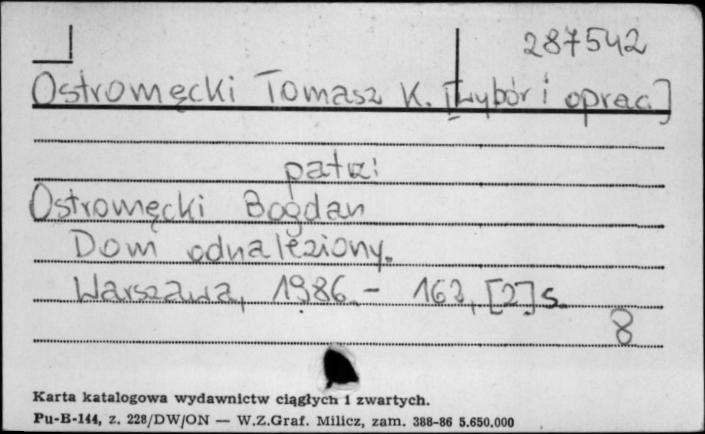 287542
Ostromęcki Tomasz K. [Wybór i oprac.]
patrz:
Ostromęcki Bogdan
Dom odnaleziony.
Warszawa, 1986. - 162, [2] s.
8
Karta katalogowa wydawnictw ciągłych i zwartych.
Pu-B-144, z. 228/DW/ON — W.Z.Graf. Milicz, zam. 388-86 5.650.000